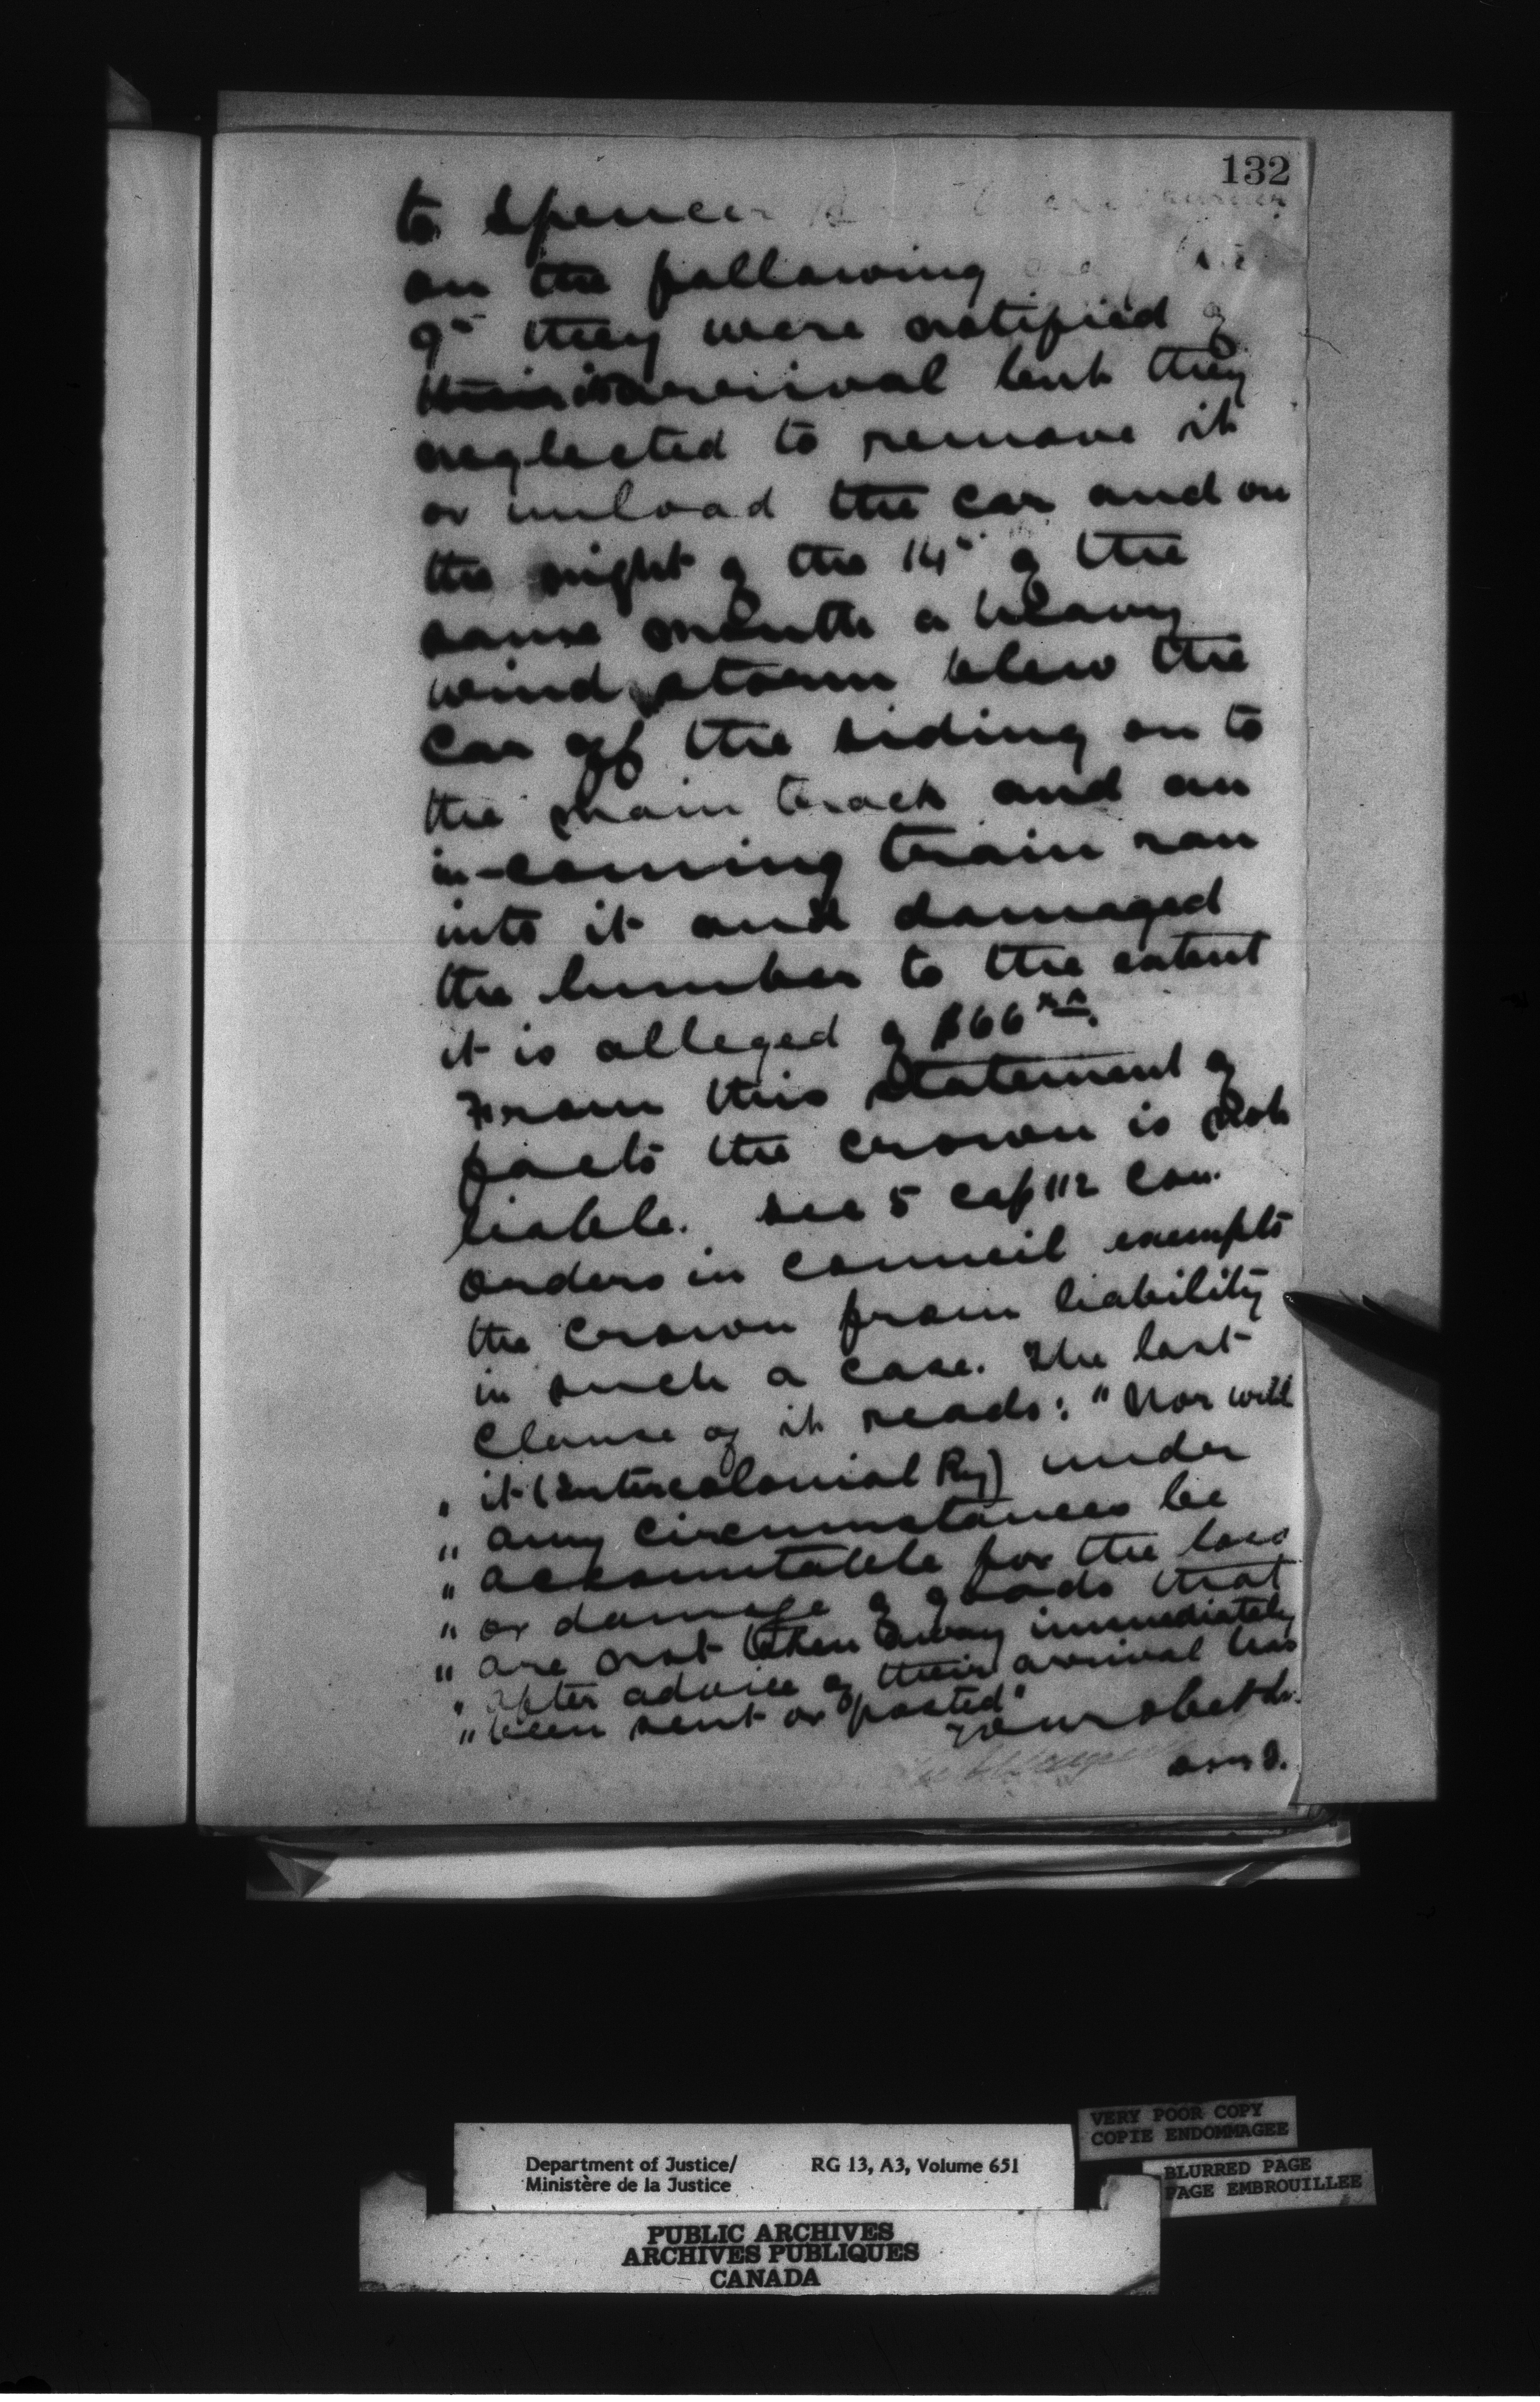 132
to Spencer
on the following
9th they were notified of
its arrival but they
neglected to remove it
or unload the car and on
the night of the 14th of the
same month a heavy
wind storm blew the
car off the siding on to
the main track and an
in-coming train ran
into it and damaged
the lumber to the extent
it is alleged of $66
From this statement of
facts the crown is not
liable. See 5 cap 112 Con.
orders in council exempts
the crown from liability
in such a case. The last
clause of it reads: "Nor will
" it (Intercolonial Ry) under
" any circumstances be
" accountable for the loss
" or damage of goods that
" are not taken away immediately
" after advice of their arrival has
" been sent or posted"
Your obedt
D.M.J.
Department of Justice/ RG 13, A3, Volume 651
Ministère de la Justice
VERY POOR COPY
COPIE ENDOMMAGEE
BLURRED PAGE
PAGE EMBROUILLEE
PUBLIC ARCHIVES
ARCHIVES PUBLIQUES
CANADA